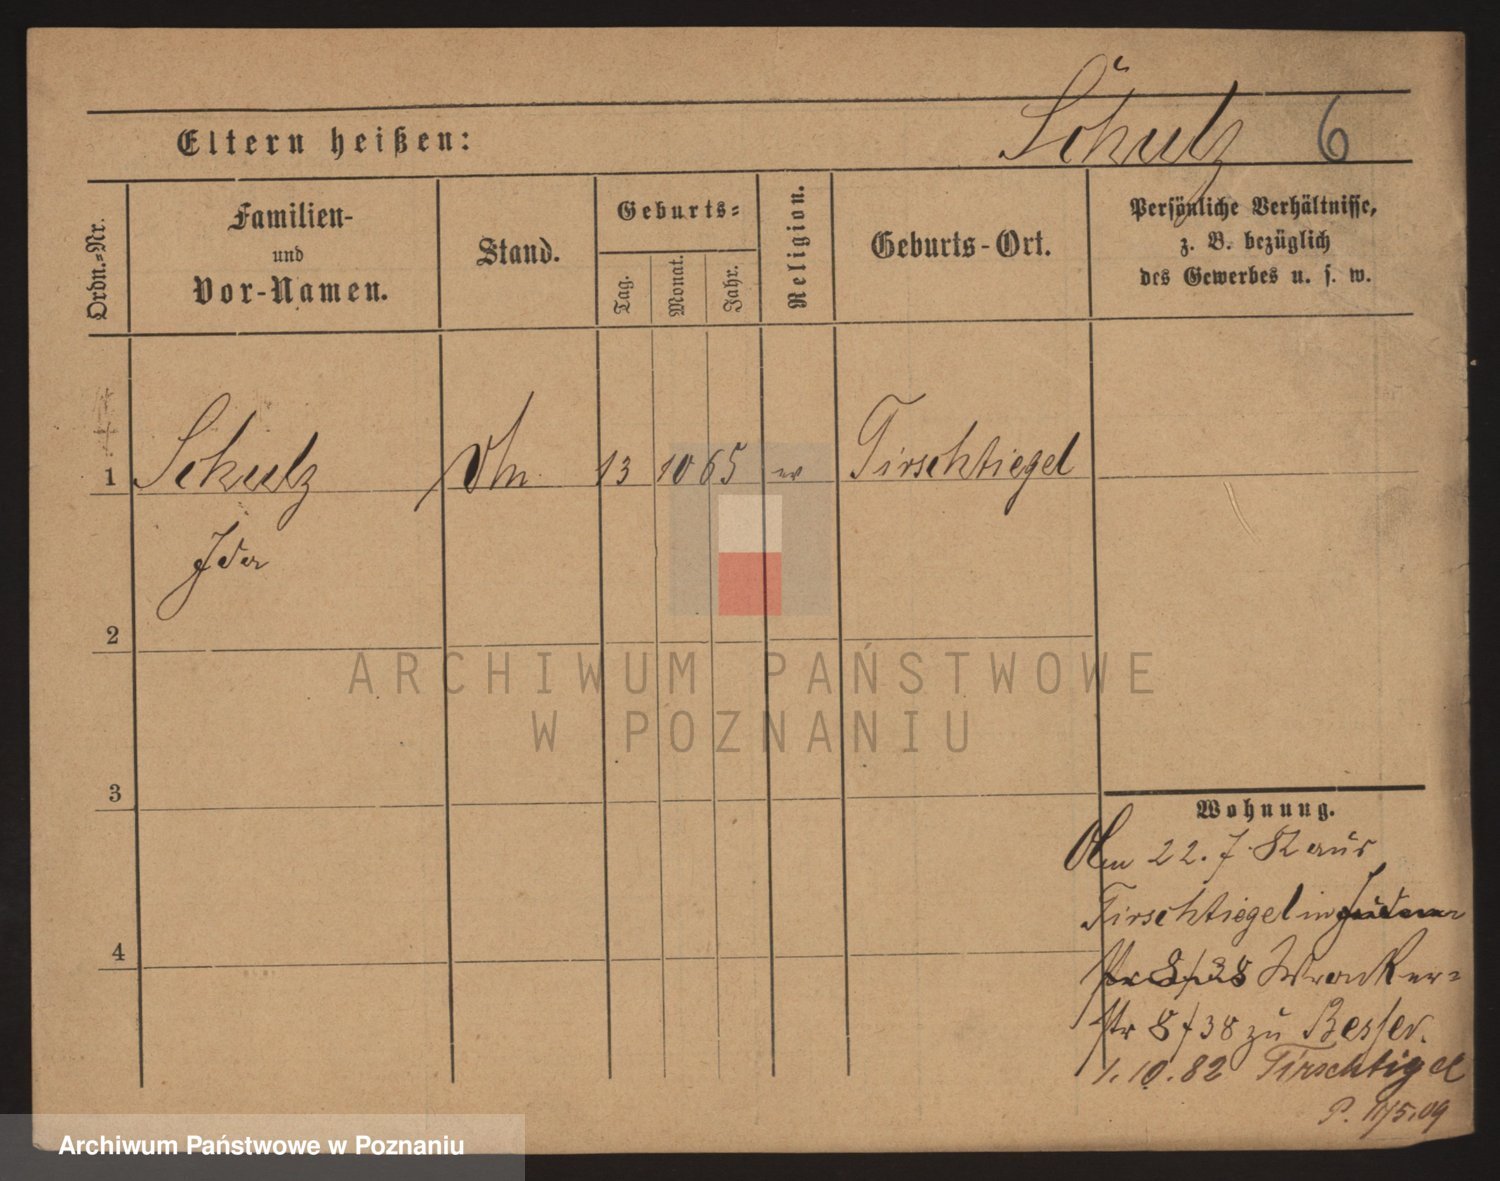 Schulz 6
Eltern heißen:
Ordn.-Nr.
Familien-
und
Vor-Namen.
Stand.
Geburts-
Tag.
Monat.
Jahr.
Religion.
Geburts-Ort.
Persönliche Verhältnisse,
z. B. bezüglich
des Gewerbes u. s. w.
1 Schulz 13 10 65 ev Tirschtiegel
Ida
2
3
4
Wohnung.
22. 7. 82 aus
Tirschtiegel in
8/38 Wronker-
Str 8/38 zu Besser.
1. 10. 82 Tirschtigel
ARCHIWUM PAŃSTWOWE
W POZNANIU
Archiwum Państwowe w Poznaniu